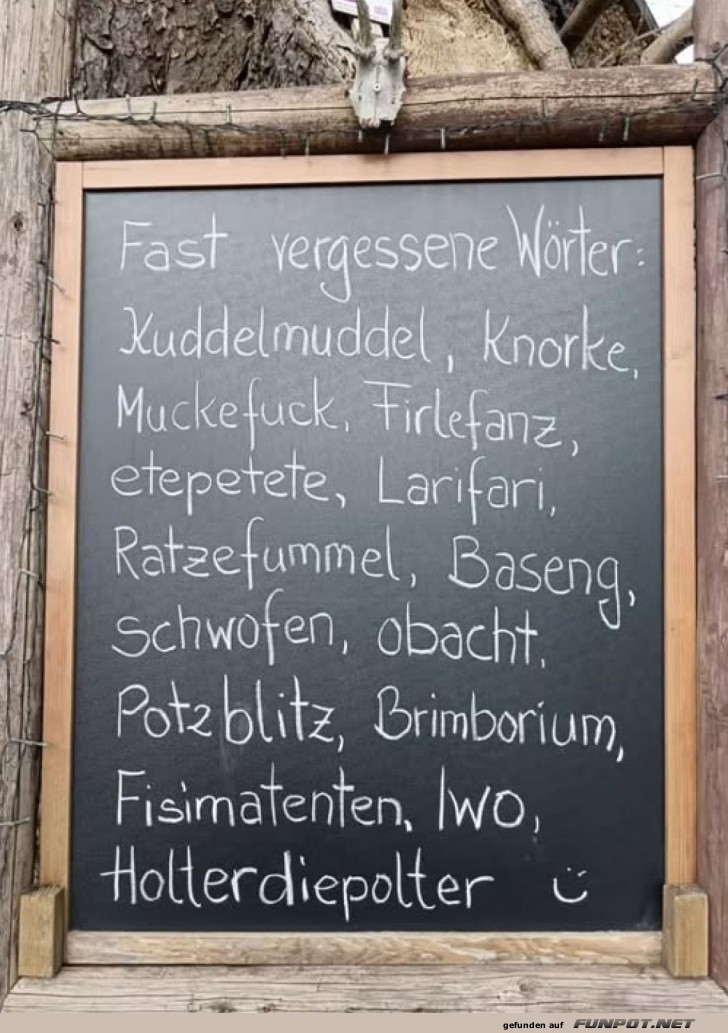 Fast vergessene Wörter:
Kuddelmuddel, Knorke,
Muckefuck, Firlefanz,
etepetete, Larifari,
Ratzefummel, Baseng,
schwofen, obacht,
Potzblitz, Brimborium,
Fisimatenten, IWO,
Holterdiepolter ü
gefunden auf FUNPOT.NET